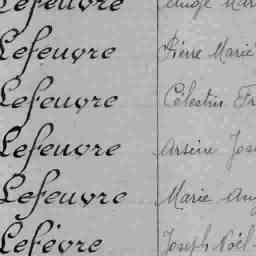 Lefeuvre
Lefeuvre Pierre Marie
Lefeuvre Célestin Fr
Lefeuvre Arsène Jos
Lefeuvre Marie Ang
Lefèvre Joseph Noël